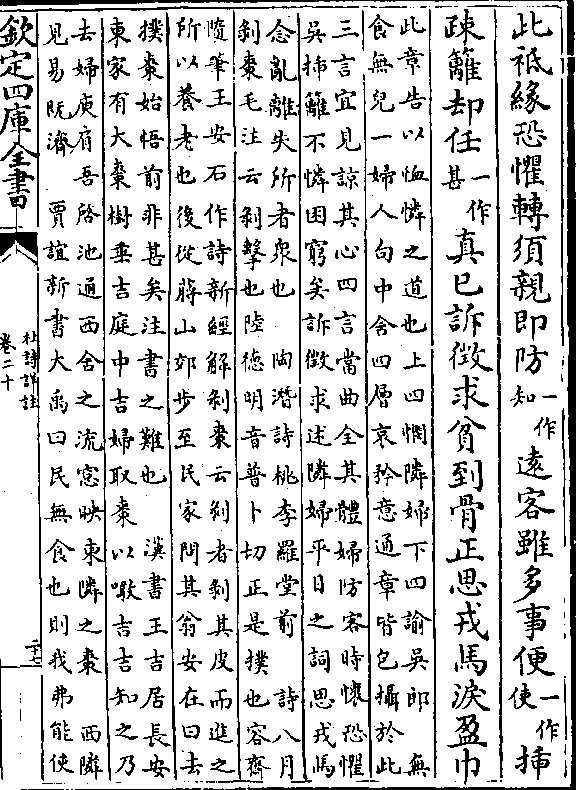 此祗緣恐懼轉須親即防一作知遠客雖多事便一作使插
疎籬却任一作甚真已訴徵求貧到骨正思戎馬淚盈巾
此章告以恤憐之道也上四憫隣婦下四諭吳郎　無
食無兒一婦人句中含四層哀矜意通章皆包攝於此
三言宜見諒其心四言當曲全其體婦防客時懷恐懼
吳插籬不憐困窮矣訴徵求述隣婦平日之詞思戎馬
念亂離失所者衆也　陶潛詩桃李羅堂前　詩八月
剥棗毛注云剥擊也陸德明音普卜切正是撲也容齋
隨筆王安石作詩新經解剥棗云剥者剥其皮而進之
所以養老也後從蔣山郊步至民家問其翁安在曰去
撲棗始悟前非甚矣注書之難也　漢書王吉居長安
東家有大棗樹垂吉庭中吉婦取棗以啖吉吉知之乃
去婦庾肩吾啓池通西舍之流窓映東隣之棗　西隣
見易既濟　賈誼新書大禹曰民無食也則我弗能使
欽定四庫全書
杜詩詳註
卷二十
二十七